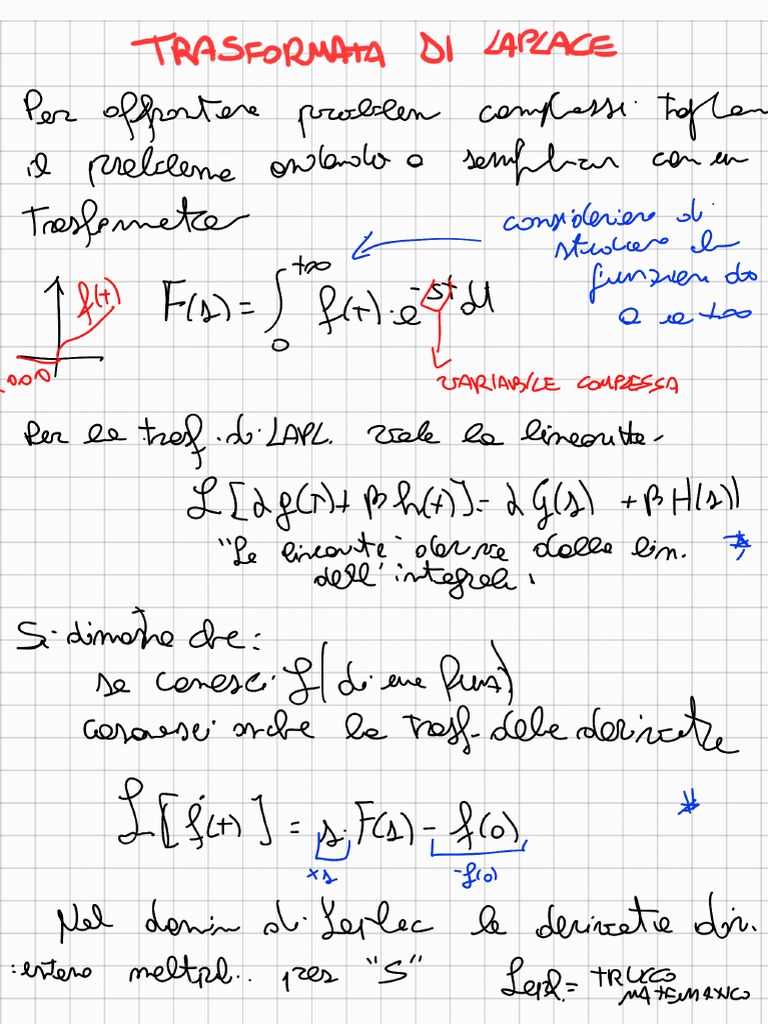 TRASFORMATA DI LAPLACE
Per affrontare problem complessi
il problema andando a semplificar con un
Trasformate
consideriamo di
studiare la
funzione da
0 a +∞
f(t)
F(s) = ∫₀^{+∞} f(t)·e^{-st} dt
VARIABILE COMPLESSA
Per la trasf. di LAPL. vale la linearità
ℒ[αg(t)+βh(t)] = αG(s) + βH(s)
"La linearità deriva dalla lin. *
dell'integrale
Si dimostra che:
se conosci ℒ(di una funz)
conosci anche la trasf. della derivata
ℒ[ḟ(t)] = s·F(s) - f(0) *
xs -f(0)
Nel domin di Laplac le derivate div.
meltpl.. per "S"
Lapl. = TRUCCO
MATEMATICO